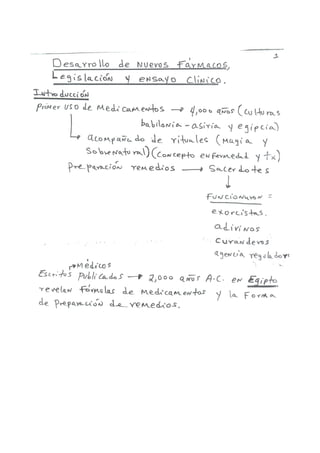 1
Desarrollo de Nuevos Fármacos,
Legislación y ensayo Clínico.
Introducción
Primer uso de Medicamentos → 4,000 años (culturas
babilonia - asiria y egipcia)
→ acompañado de rituales (Magia y
Sobrenatural) (Concepto enfermedad y tx)
preparación remedios → Sacerdotes
↓
Funcionaron =
exorcistas.
adivinos
curanderos
agencia reguladora
→ Médicos
Escritos publicados → 2,000 años A.C. en Egipto
revelan fórmulas de medicamentos y la Forma
de preparación de remedios.